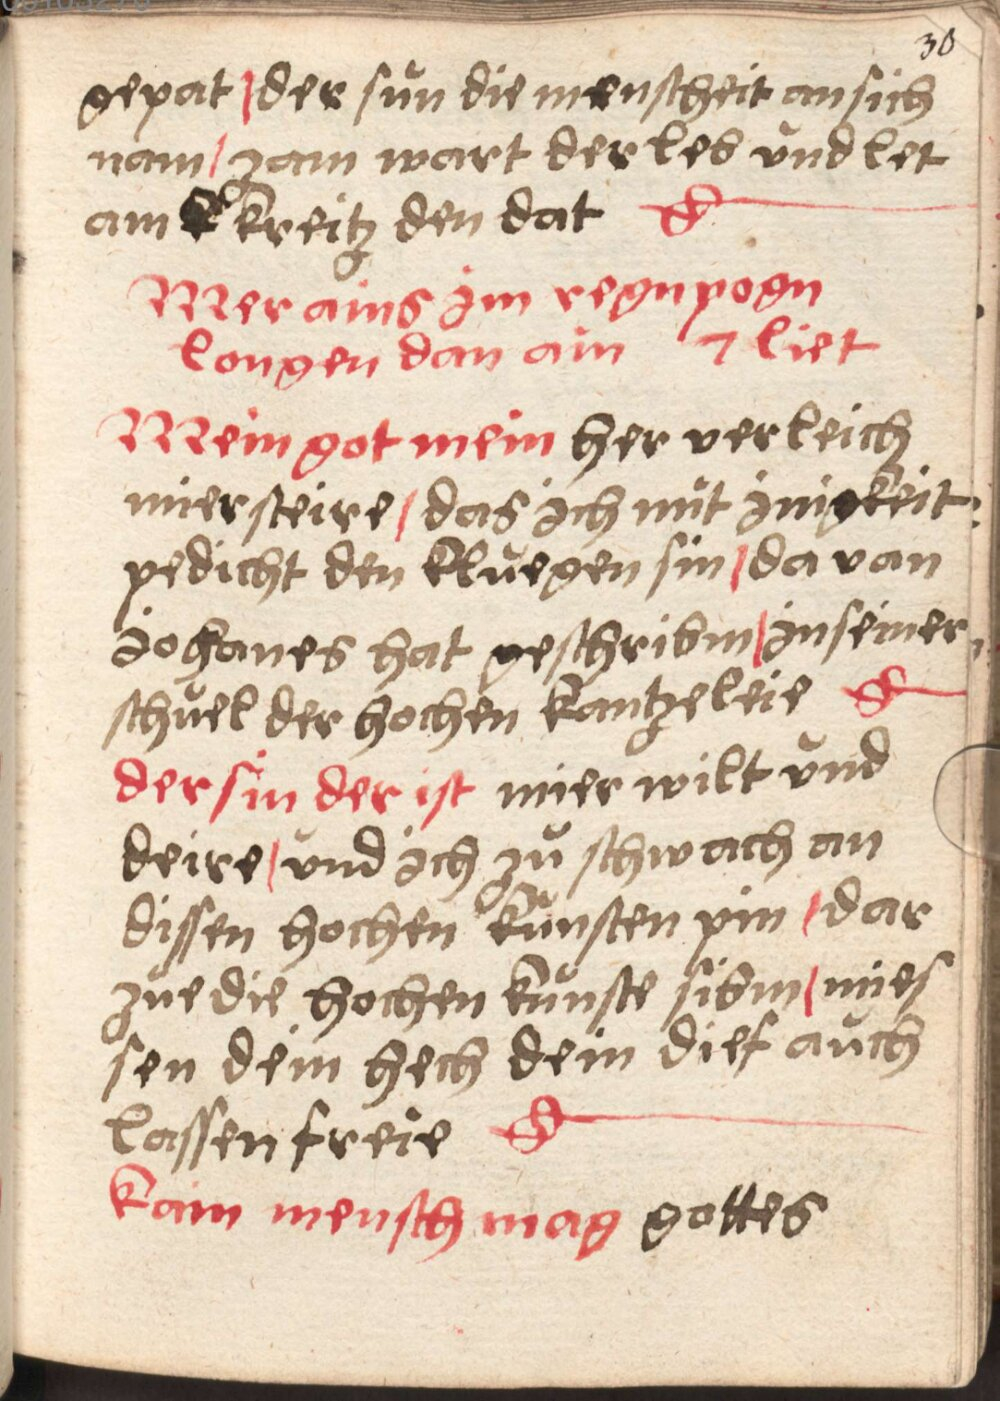 38
gepat / der sun die menscheit an sich
nam / zam wart der leb und let
am kreitz den dat
Mer ains im regnpogn
longen dan ain 7 liet
Mein got mein her verleich
mier steire / das ich mit inigkeit
pedicht den kluegen sin / da van
iohanes hat geschribm / in seiner
schuel der hochen kantzeleie
der sin der ist mier wilt und
deire / und ich zu schwach an
dissen hochen kunsten pin / dar
zue die hochen kunste sibm / mies
sen dein hech dein dief auch
lassen freie
kain mensch mag gottes